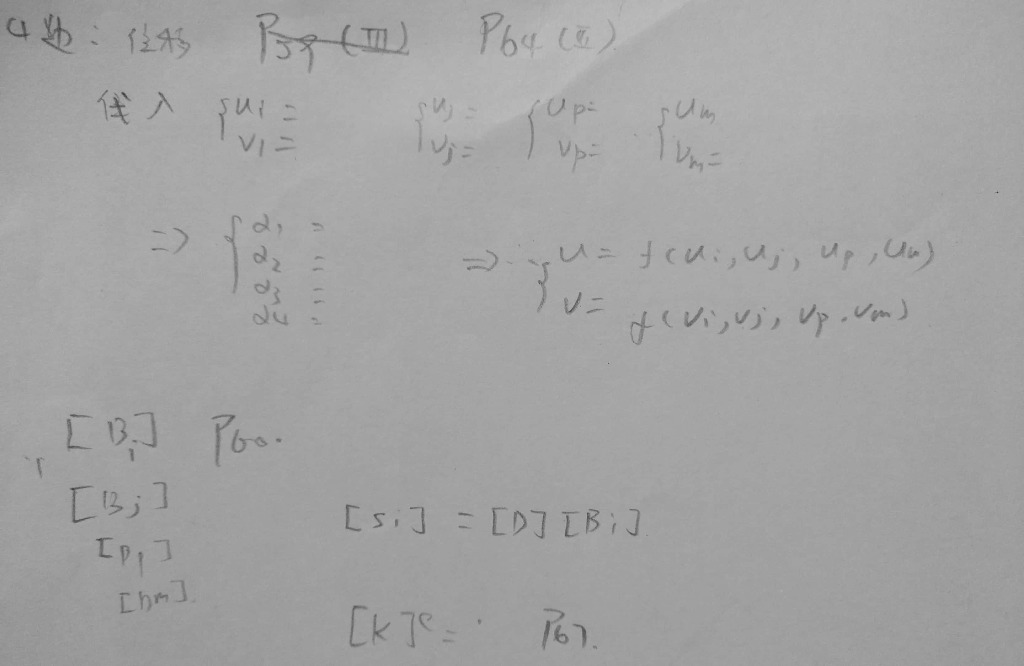 4题: 位移 P59 (III) P64 (II)
代入 { ui = vi = { uj = vj = { up = vp = { um vm =
⇒ { α1 = α2 = α3 = α4 = ⇒ { u = f(ui, uj, up, um) v = f(vi, vj, vp, vm)
[Bi] P60.
[Bj]
[Si] = [D][Bi]
[bm]
[K]e = P67.